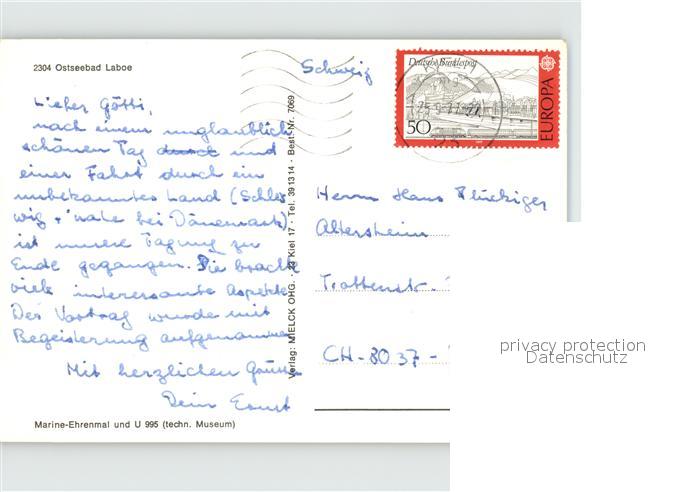 2304 Ostseebad Laboe
Schweiz
Deutsche Bundespost
50
EUROPA
Lieber Götti,
nach einem unglaublich
schönen Tag und
einer Fahrt durch ein
unbekanntes Land (Schles
wig, nahe bei Dänemark)
ist unsere Tagung zu
Ende gegangen. Sie brachte
viele interessante Aspekte.
Der Vortrag wurde mit
Begeisterung aufgenommen.
Mit herzlichen Grüssen
Dein Ernst
Verlag: MIELCK OHG. · 23 Kiel 17 · Tel. 39 13 14 · Best.-Nr. 7069
Herrn Hans Flückiger
Altersheim
Trottenstr.
CH-8037-
Marine-Ehrenmal und U 995 (techn. Museum)
privacy protection
Datenschutz